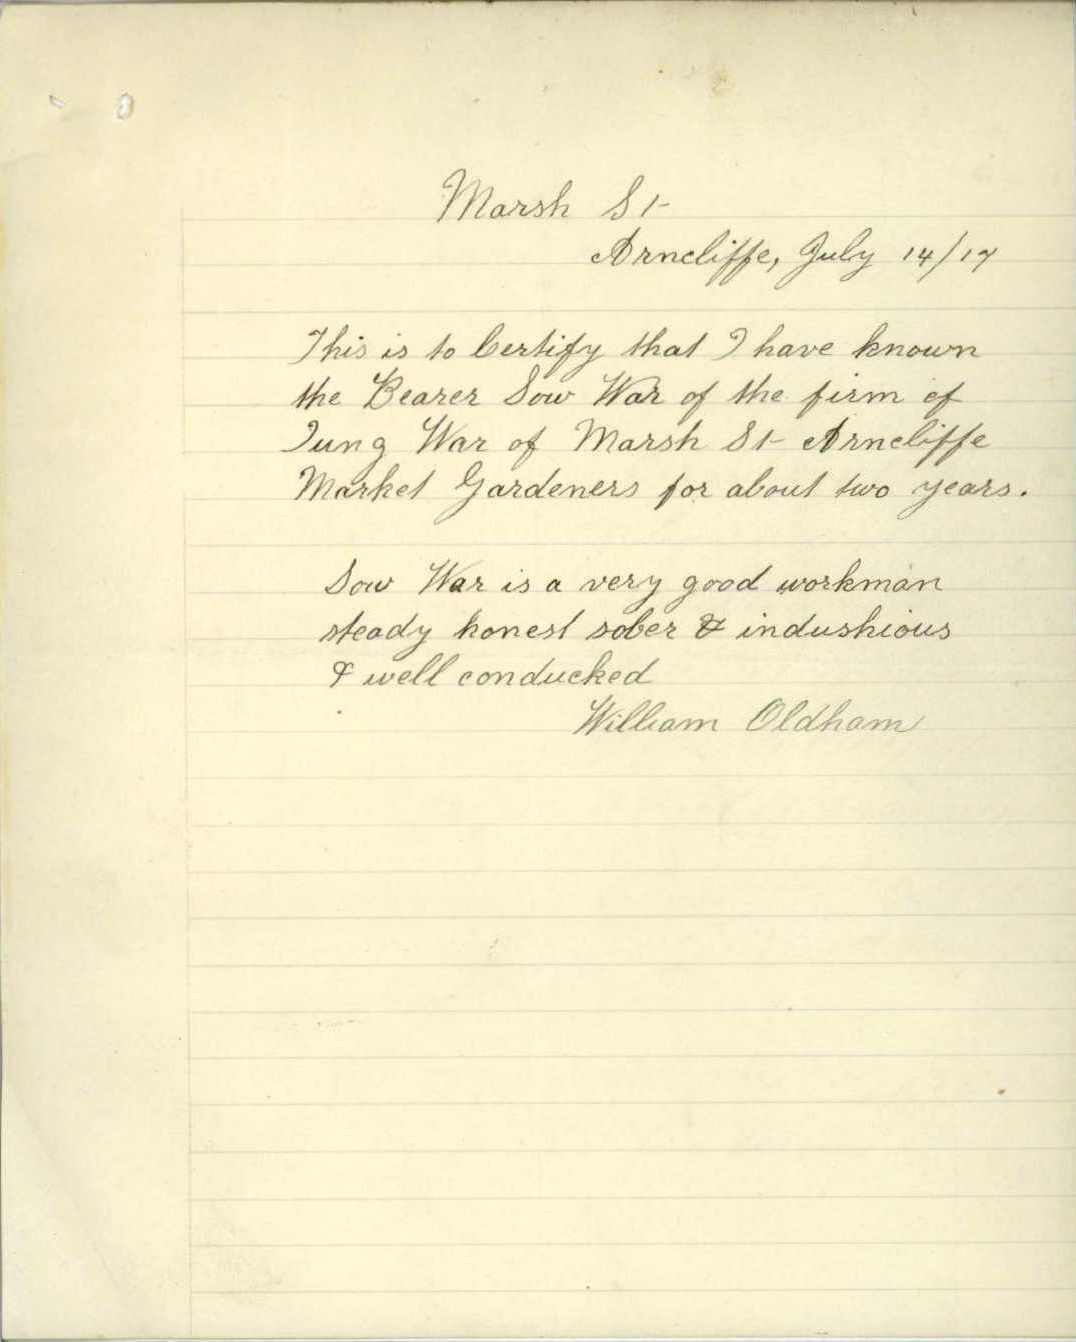 Marsh St
Arncliffe, July 14/17
This is to Certify that I have known
the Bearer Sow War of the firm of
Tung War of Marsh St Arncliffe
Market Gardeners for about two years.
Sow War is a very good workman
steady honest sober & industrious
& well conducked
William Oldham